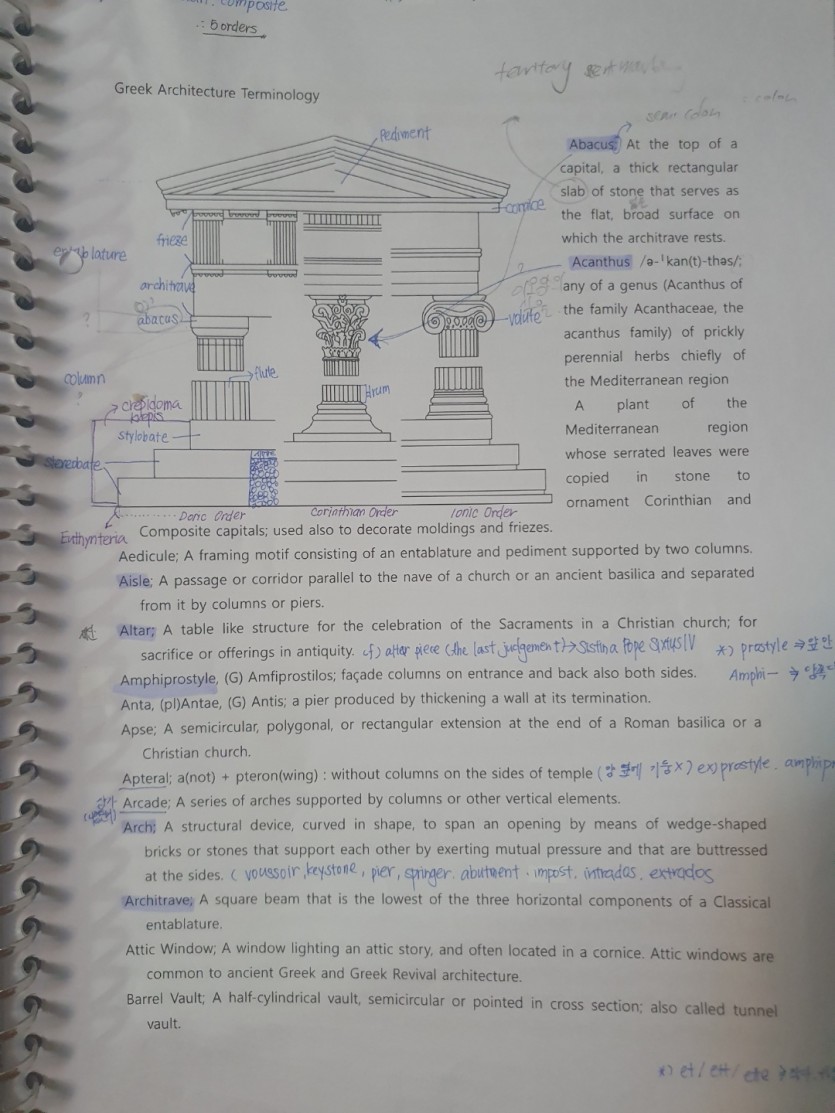 composite
∴ 5 orders
Greek Architecture Terminology
Pediment
cornice
frieze
architrave
abacus
?
column
?
flute
drum
volute
crepidoma
stylobate
stereobate
Euthynteria
Doric Order
Corinthian Order
Ionic Order
Abacus; At the top of a
capital, a thick rectangular
slab of stone that serves as
the flat, broad surface on
which the architrave rests.
Acanthus /ə-ˈkan(t)-thəs/;
any of a genus (Acanthus of
the family Acanthaceae, the
acanthus family) of prickly
perennial herbs chiefly of
the Mediterranean region
A plant of the
Mediterranean region
whose serrated leaves were
copied in stone to
ornament Corinthian and
Composite capitals; used also to decorate moldings and friezes.
Aedicule; A framing motif consisting of an entablature and pediment supported by two columns.
Aisle; A passage or corridor parallel to the nave of a church or an ancient basilica and separated
from it by columns or piers.
Altar; A table like structure for the celebration of the Sacraments in a Christian church; for
sacrifice or offerings in antiquity. cf) alter piece (the last judgement) → Sistina Pope Sixtus IV
*) prostyle ⇒ 앞만
Amphiprostyle, (G) Amfiprostilos; façade columns on entrance and back also both sides.
Amphi- ⇒
Anta, (pl)Antae, (G) Antis; a pier produced by thickening a wall at its termination.
Apse; A semicircular, polygonal, or rectangular extension at the end of a Roman basilica or a
Christian church.
Apteral; a(not) + pteron(wing) : without columns on the sides of temple (양 옆에 기둥X) ex) prostyle. amphipr
Arcade; A series of arches supported by columns or other vertical elements.
Arch; A structural device, curved in shape, to span an opening by means of wedge-shaped
bricks or stones that support each other by exerting mutual pressure and that are buttressed
at the sides. ( voussoir, keystone, pier, springer. abutment. impost, intrados. extrados
Architrave; A square beam that is the lowest of the three horizontal components of a Classical
entablature.
Attic Window; A window lighting an attic story, and often located in a cornice. Attic windows are
common to ancient Greek and Greek Revival architecture.
Barrel Vault; A half-cylindrical vault, semicircular or pointed in cross section; also called tunnel
vault.